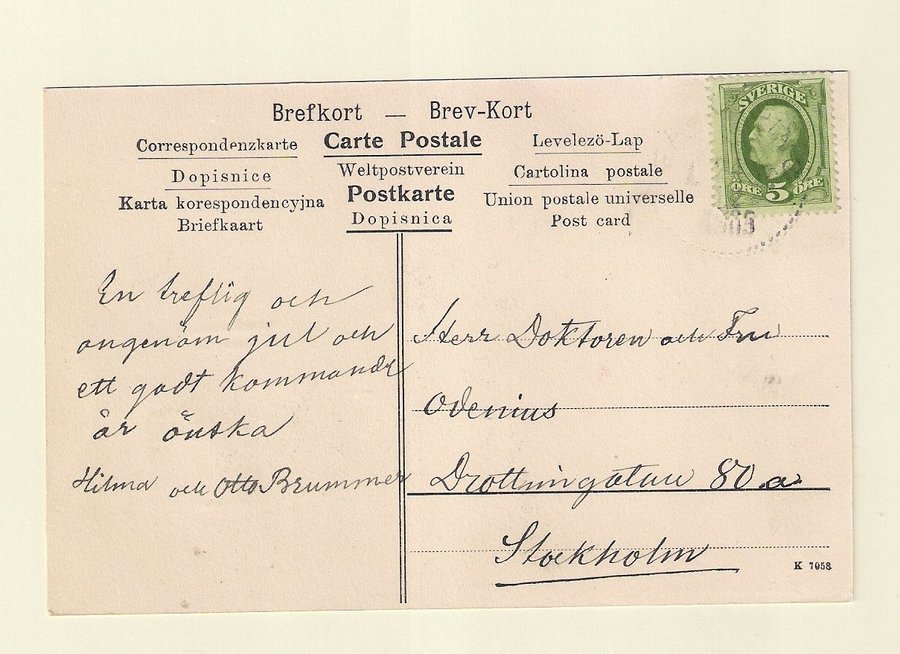 Brefkort — Brev-Kort
Correspondenzkarte Carte Postale Levelezö-Lap
Dopisnice Weltpostverein Cartolina postale
Karta korespondencyjna Postkarte Union postale universelle
Briefkaart Dopisnica Post card
SVERIGE
ÖRE 5 ÖRE
En treflig och
angenäm jul och
ett godt kommande
år önska
Hilma och Otto Brummer
Herr Doktoren och Fru
Odenius
Drottningatan 80 a
Stockholm
K 7058